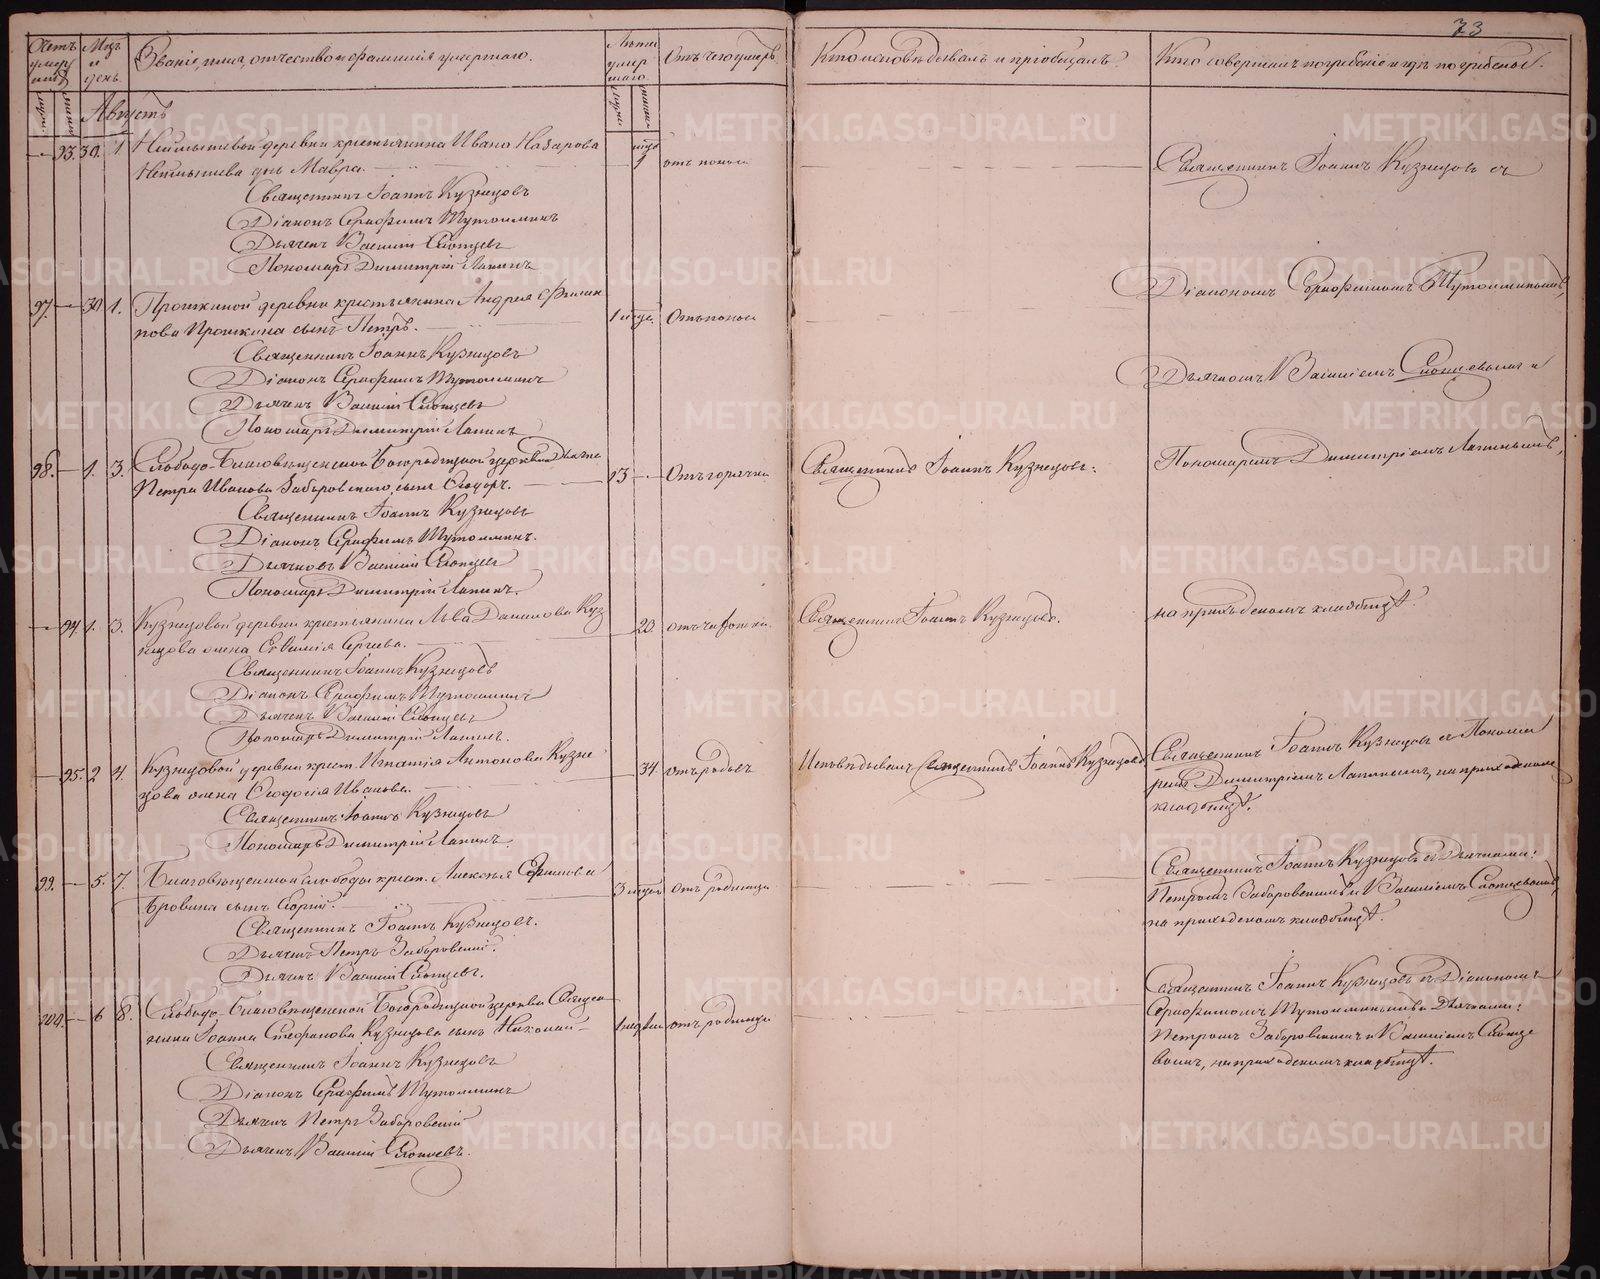 73
Счетъ умершихъ
Мѣс. и день.
Званіе, имя, отчество и фамилія умершаго.
Лѣта умершаго
Отъ чего умеръ
Кто исповѣдывалъ и пріобщалъ.
Кто совершалъ погребеніе и гдѣ погребены.
Августъ
93. 30. 1. деревни крестьянина Ивана Назарова
дочь Мавра. 1 отъ поноса
Священникъ Іоаннъ Кузнецовъ съ
Священникъ Іоаннъ Кузнецовъ
Діаконъ Серафимъ
Дьячекъ Василій Слопцевъ
Пономарь Димитрій Лапинъ
Діакономъ Серафимомъ
97. 30 1. Прошкиной деревни крестьянина Андрея Филип
пова Прошкина сынъ Петръ. Отъ поноса
Священникъ Іоаннъ Кузнецовъ
Діаконъ Серафимъ
Дьячекъ Василій Слопцевъ
Пономарь Димитрій Лапинъ
Дьячкомъ Василіемъ Слопцевымъ и
98. 1. 3. Слободо-Благовѣщенской Богородицкой церкви Дьячка
Петра Иванова Заборовскаго сынъ Ѳедоръ. 13 Отъ горячки
Священникъ Іоаннъ Кузнецовъ.
Пономаремъ Димитріемъ Лапинымъ,
Священникъ Іоаннъ Кузнецовъ
Діаконъ Серафимъ
Дьячекъ Василій Слопцевъ
Пономарь Димитрій Лапинъ.
на приходскомъ кладбищѣ.
94. 1. 3. Кузнецовой деревни крестьянина Льва Данилова Куз
нецова жена Евфимія Сергѣева. 20. отъ чахотки.
Священникъ Іоаннъ Кузнецовъ.
Священникъ Іоаннъ Кузнецовъ
Діаконъ Серафимъ
Дьячекъ Василій Слопцевъ
Пономарь Димитрій Лапинъ.
95. 2 4. Кузнецовой деревни крест. Игнатія Антонова Кузне
цова жена Ѳедосія Иванова. 34. отъ родовъ
Исповѣдывалъ Священникъ Іоаннъ Кузнецовъ
Священникъ Іоаннъ Кузнецовъ съ Понома
ремъ Димитріемъ Лапинымъ, на приходском
кладбищѣ.
Священникъ Іоаннъ Кузнецовъ
Пономарь Димитрій Лапинъ.
99. 5. 7. Благовѣщенской слободы крест. Алексѣя
Бровина сынъ 3 недѣл отъ родимца
Священникъ Іоаннъ Кузнецовъ съ Дьячками:
Петромъ Заборовскимъ и Василіемъ Слопцевымъ,
на приходскомъ кладбищѣ.
Священникъ Іоаннъ Кузнецовъ.
Дьячекъ Петръ Заборовскій.
Дьячекъ Василій Слопцевъ.
100. 6 8. Слободо-Благовѣщенской Богородицкой церкви Священ
ника Іоанна Стефанова Кузнецова сынъ Николай 1 недѣли отъ родимца
Священникъ Іоаннъ Кузнецовъ съ Діакономъ
Серафимомъ и Дьячками:
Петромъ Заборовскимъ и Василіемъ Слопце
вымъ, на приходскомъ кладбищѣ.
Священникъ Іоаннъ Кузнецовъ
Діаконъ Серафимъ
Дьячекъ Петръ Заборовскій
Дьячекъ Василій Слопцевъ.
METRIKI.GASO-URAL.RU